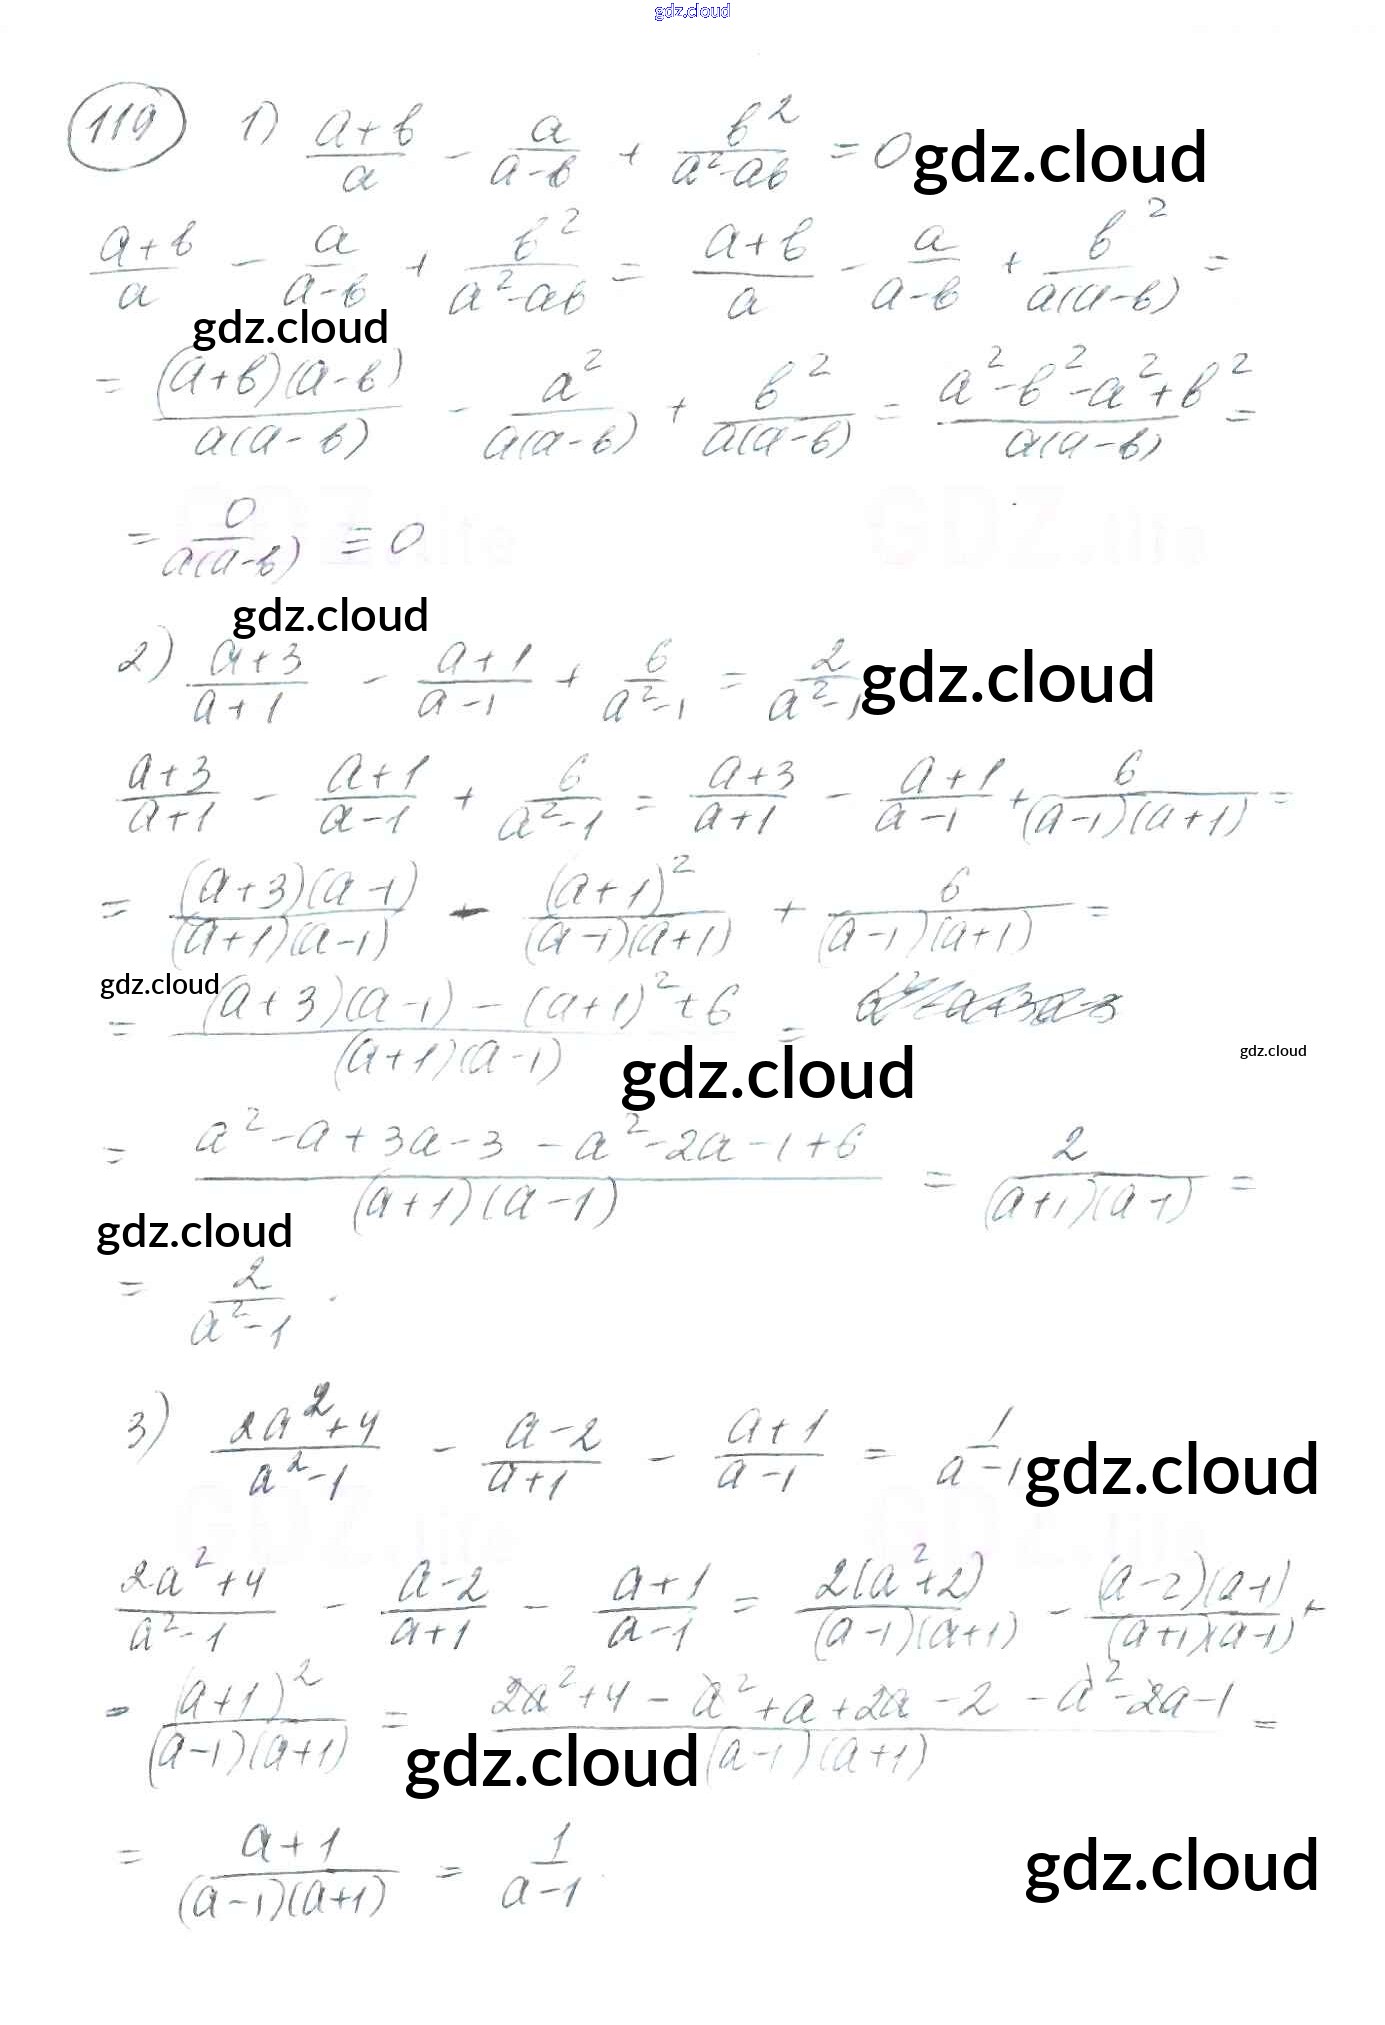 gdz.cloud
119 1) (a+b)/a - a/(a-b) + b²/(a²-ab) = 0 gdz.cloud
(a+b)/a - a/(a-b) + b²/(a²-ab) = (a+b)/a - a/(a-b) + b²/(a(a-b)) =
gdz.cloud
= (a+b)(a-b)/(a(a-b)) - a²/(a(a-b)) + b²/(a(a-b)) = (a²-b²-a²+b²)/(a(a-b)) =
= 0/(a(a-b)) ≡ 0
GDZ.life GDZ.life
gdz.cloud
2) (a+3)/(a+1) - (a+1)/(a-1) + 6/(a²-1) = 2/(a²-1) gdz.cloud
(a+3)/(a+1) - (a+1)/(a-1) + 6/(a²-1) = (a+3)/(a+1) - (a+1)/(a-1) + 6/((a-1)(a+1)) =
= (a+3)(a-1)/((a+1)(a-1)) - (a+1)²/((a-1)(a+1)) + 6/((a-1)(a+1)) =
gdz.cloud
= ((a+3)(a-1) - (a+1)²+6)/((a+1)(a-1)) =
gdz.cloud gdz.cloud
= (a²-a+3a-3-a²-2a-1+6)/((a+1)(a-1)) = 2/((a+1)(a-1)) =
gdz.cloud
= 2/(a²-1).
3) (2a²+4)/(a²-1) - (a-2)/(a+1) - (a+1)/(a-1) = 1/(a-1) gdz.cloud
GDZ.life GDZ.life
(2a²+4)/(a²-1) - (a-2)/(a+1) - (a+1)/(a-1) = 2(a²+2)/((a-1)(a+1)) - (a-2)(a-1)/((a+1)(a-1)) -
- (a+1)²/((a-1)(a+1)) = (2a²+4-a²+a+2a-2-a²-2a-1)/((a-1)(a+1)) =
gdz.cloud
= (a+1)/((a-1)(a+1)) = 1/(a-1).
gdz.cloud